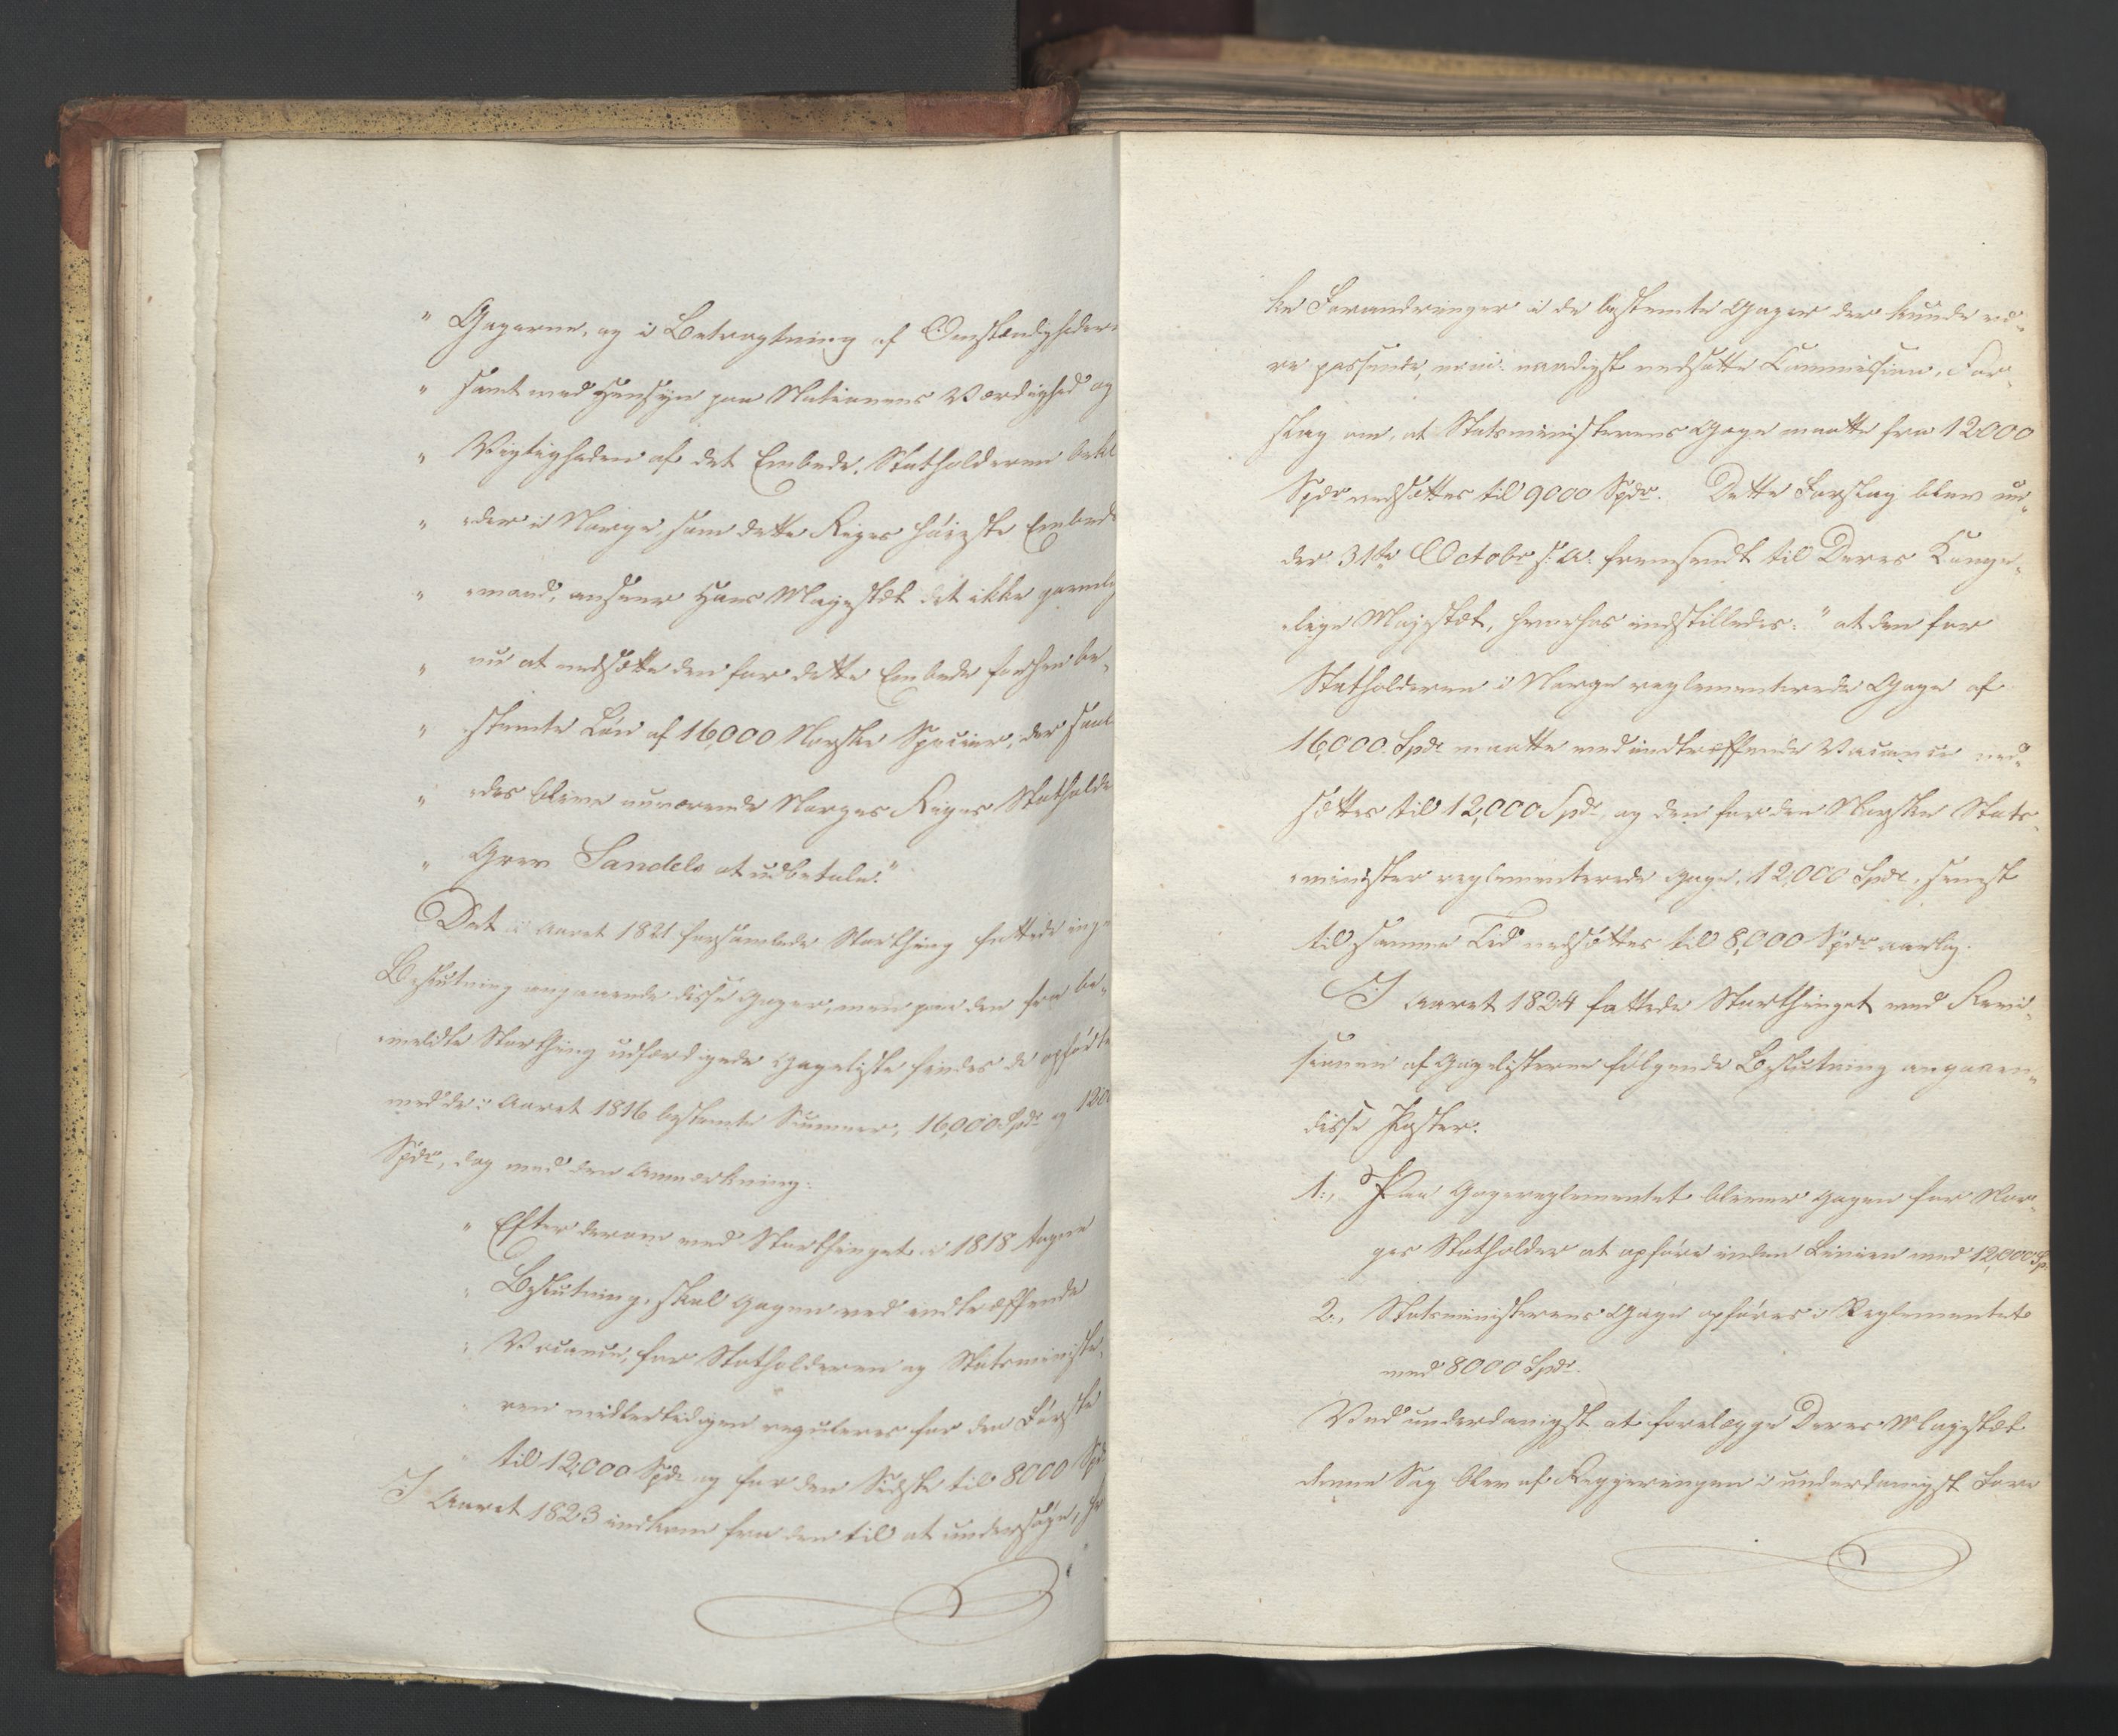 " Gagerne, og i Betragtning af Omstændigheder
" samt med Hensyn paa Nationens Værdighed og
" Vigtigheden af det Embede, Statholderen bekl
" eder i Norge, som dette Riges høieste Embeds
" mand, anseer Hans Majestæt det ikke
" nu at nedsætte den for dette Embede forhen be-
" stemte Løn af 16,000 Norske Specier, der saal
" edes bliver nuværende Norges Riges Statholder
" Grev Sandels at udbetale."
Det i Aaret 1821 forsamlede Storthing fattede inge
Beslutning angaaende disse Gager, men paa den fra be-
meldte Storthing udfærdigede Gageliste findes de opførte
med de i Aaret 1816 bestemte Summer, 16,000 Spdr og 1200
Spdr, dog med den Anmærkning:
" Efter derom ved Storthinget i 1818 tagne
" Beslutning, skal Gagen ved indtræffende
" Vacance, for Statholderen og Statsministe-
" ren midlertidigen reguleres for den Første
til 12,000 Spdr og for den Sidste til 8000 Spdr
I Aaret 1823 indkom fra den til at undersøge, hv
ke Forandringer i de bestemte Gager der kunde væ-
re passende, naadigst nedsatte Commission, For-
slag om, at Statsministerens Gage maatte fra 12000
Spdr nedsættes til 9000 Spdr. Dette Forslag blev un-
der 31te Octobr s: A: fremsendt til Deres Konge-
lige Majestæt, hvorhos indstilledes: "at den for
Statholderen i Norge reglementerede Gage af
16,000 Spdr maatte ved indtræffende Vacance ned-
sættes til 12,000 Spdr, og den for den Norske Stats-
minister reglementerede Gage, 12,000 Spdr, senest
til samme Tid nedsættes til 8,000 Spdr aarlig.
I Aaret 1824 fattede Storthinget ved Revi-
sionen af Gagelisterne følgende Beslutning angaaen-
disse Poster:
1:, Paa Gagereglementet bliver Gagen for Nor-
ges Statholder at opføre inden Linien med 12,000 Sp.
2:, Statsministerens Gage opføres i Reglementet
med 8000 Spdr.
Ved underdanigst at forelægge Deres Majestæt
denne Sag blev af Regjeringen i underdanigst Fore